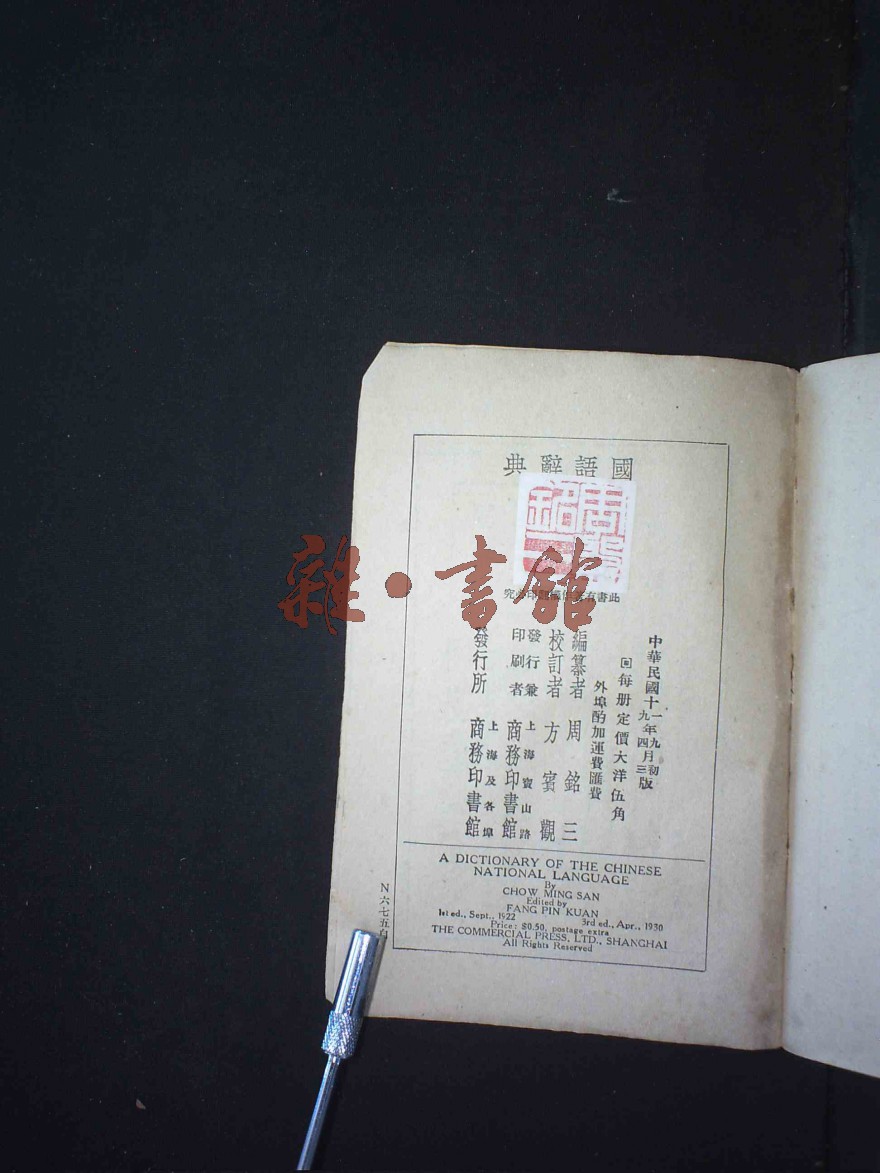 國語辭典
周銘三
雜·書館
中華民國十一年九月初版
九年四月三版
回每册定價大洋伍角
外埠酌加運費匯費
編纂者 周銘三
校訂者 方賓觀
發行兼印刷者 上海寶山路 商務印書館
發行所 上海及各埠 商務印書館
A DICTIONARY OF THE CHINESE
NATIONAL LANGUAGE
By
CHOW MING SAN
Edited by
FANG PIN KUAN
1st ed., Sept., 1922 3rd ed., Apr., 1930
Price: $0.50, postage extra
THE COMMERCIAL PRESS, LTD., SHANGHAI
All Rights Reserved
N六七五自